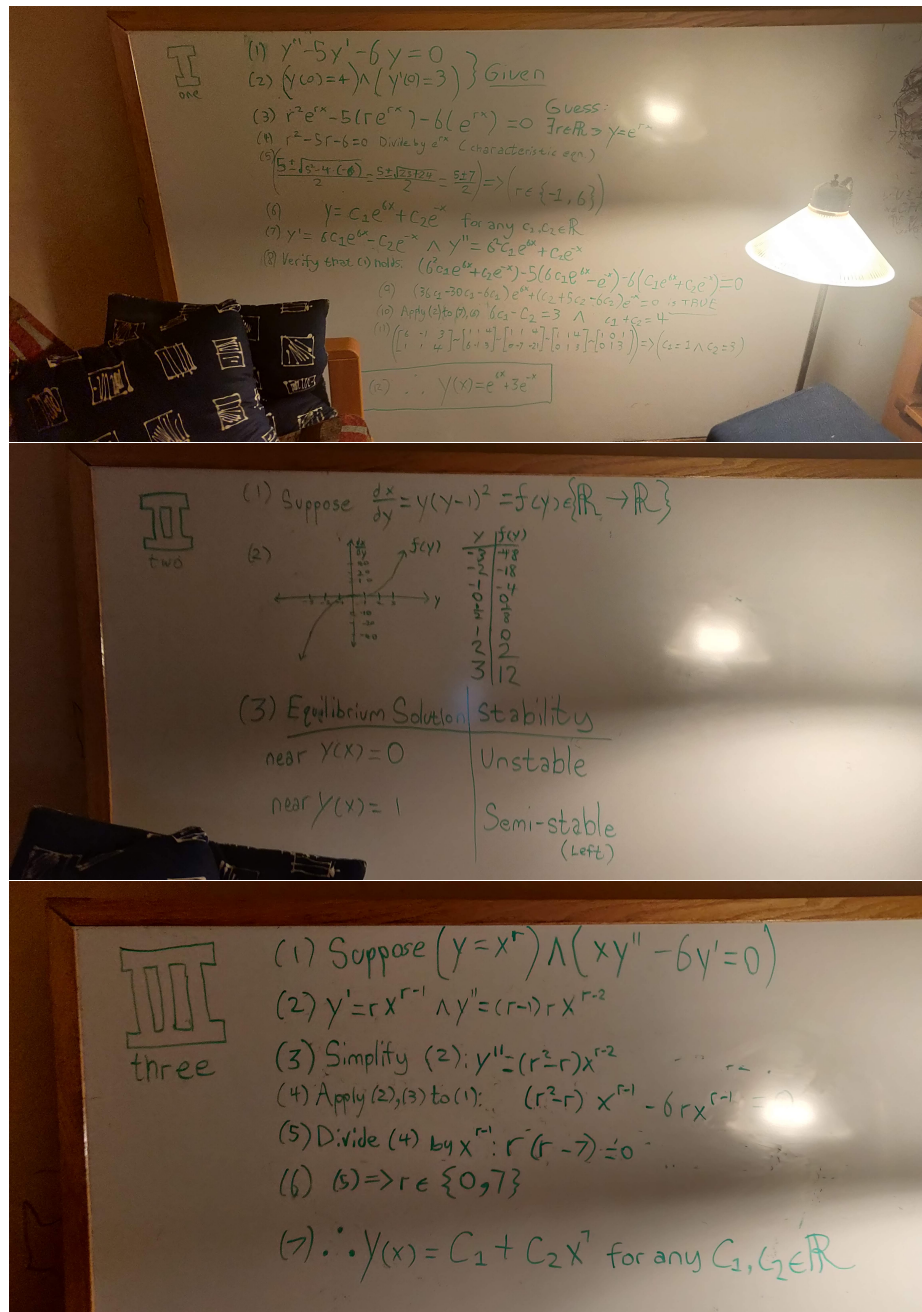 I
one
(1) y''-5y'-6y=0
(2) (y(0)=4)∧(y'(0)=3) } Given
Guess:
(3) r²e^{rx}-5(re^{rx})-6(e^{rx})=0 ∃r∈ℝ∋y=e^{rx}
(4) r²-5r-6=0 Divide by e^{rx} (characteristic eqn.)
(5) (5±√(5²-4·(-6))/2 = 5±√(25+24)/2 = 5±7/2) => (r∈{-1,6})
(6) y=c₁e^{6x}+c₂e^{-x} for any c₁,c₂∈ℝ
(7) y'=6c₁e^{6x}-c₂e^{-x} ∧ y''=6²c₁e^{6x}+c₂e^{-x}
(8) Verify that (1) holds: (6²c₁e^{6x}+c₂e^{-x})-5(6c₁e^{6x}-e^{-x})-6(c₁e^{6x}+c₂e^{-x})=0
(9) (36c₁-30c₁-6c₁)e^{6x}+(c₂+5c₂-6c₂)e^{-x}=0 is TRUE
(10) Apply (2) to (7),(6) 6c₁-c₂=3 ∧ c₁+c₂=4
(11) ([6 -1 3; 1 1 4]~[1 1 4; 6 -1 3]~[1 1 4; 0 -7 -21]~[1 1 4; 0 1 3]~[1 0 1; 0 1 3]) => (c₁=1∧c₂=3)
(12) ∴ y(x)=e^{6x}+3e^{-x}
II
two
(1) Suppose dx/dy=y(y-1)²=f(y)∈{ℝ→ℝ}
(2)
dx/dy
f(y)
y
y f(y)
-3 -48
-2 -18
-1 -4
0 0
1/2 1/8
1 0
2 2
3 12
(3) Equilibrium Solution Stability
near y(x)=0 Unstable
near y(x)=1 Semi-stable
(Left)
III
three
(1) Suppose (y=x^r)∧(xy''-6y'=0)
(2) y'=rx^{r-1} ∧ y''=(r-1)rx^{r-2}
(3) Simplify (2): y''=(r²-r)x^{r-2}
(4) Apply (2),(3) to (1): (r²-r) x^{r-1} - 6rx^{r-1} = 0
(5) Divide (4) by x^{r-1}: r(r-7)=0
(6) (5)=>r∈{0,7}
(7) ∴ y(x)=C₁+C₂x⁷ for any C₁,C₂∈ℝ